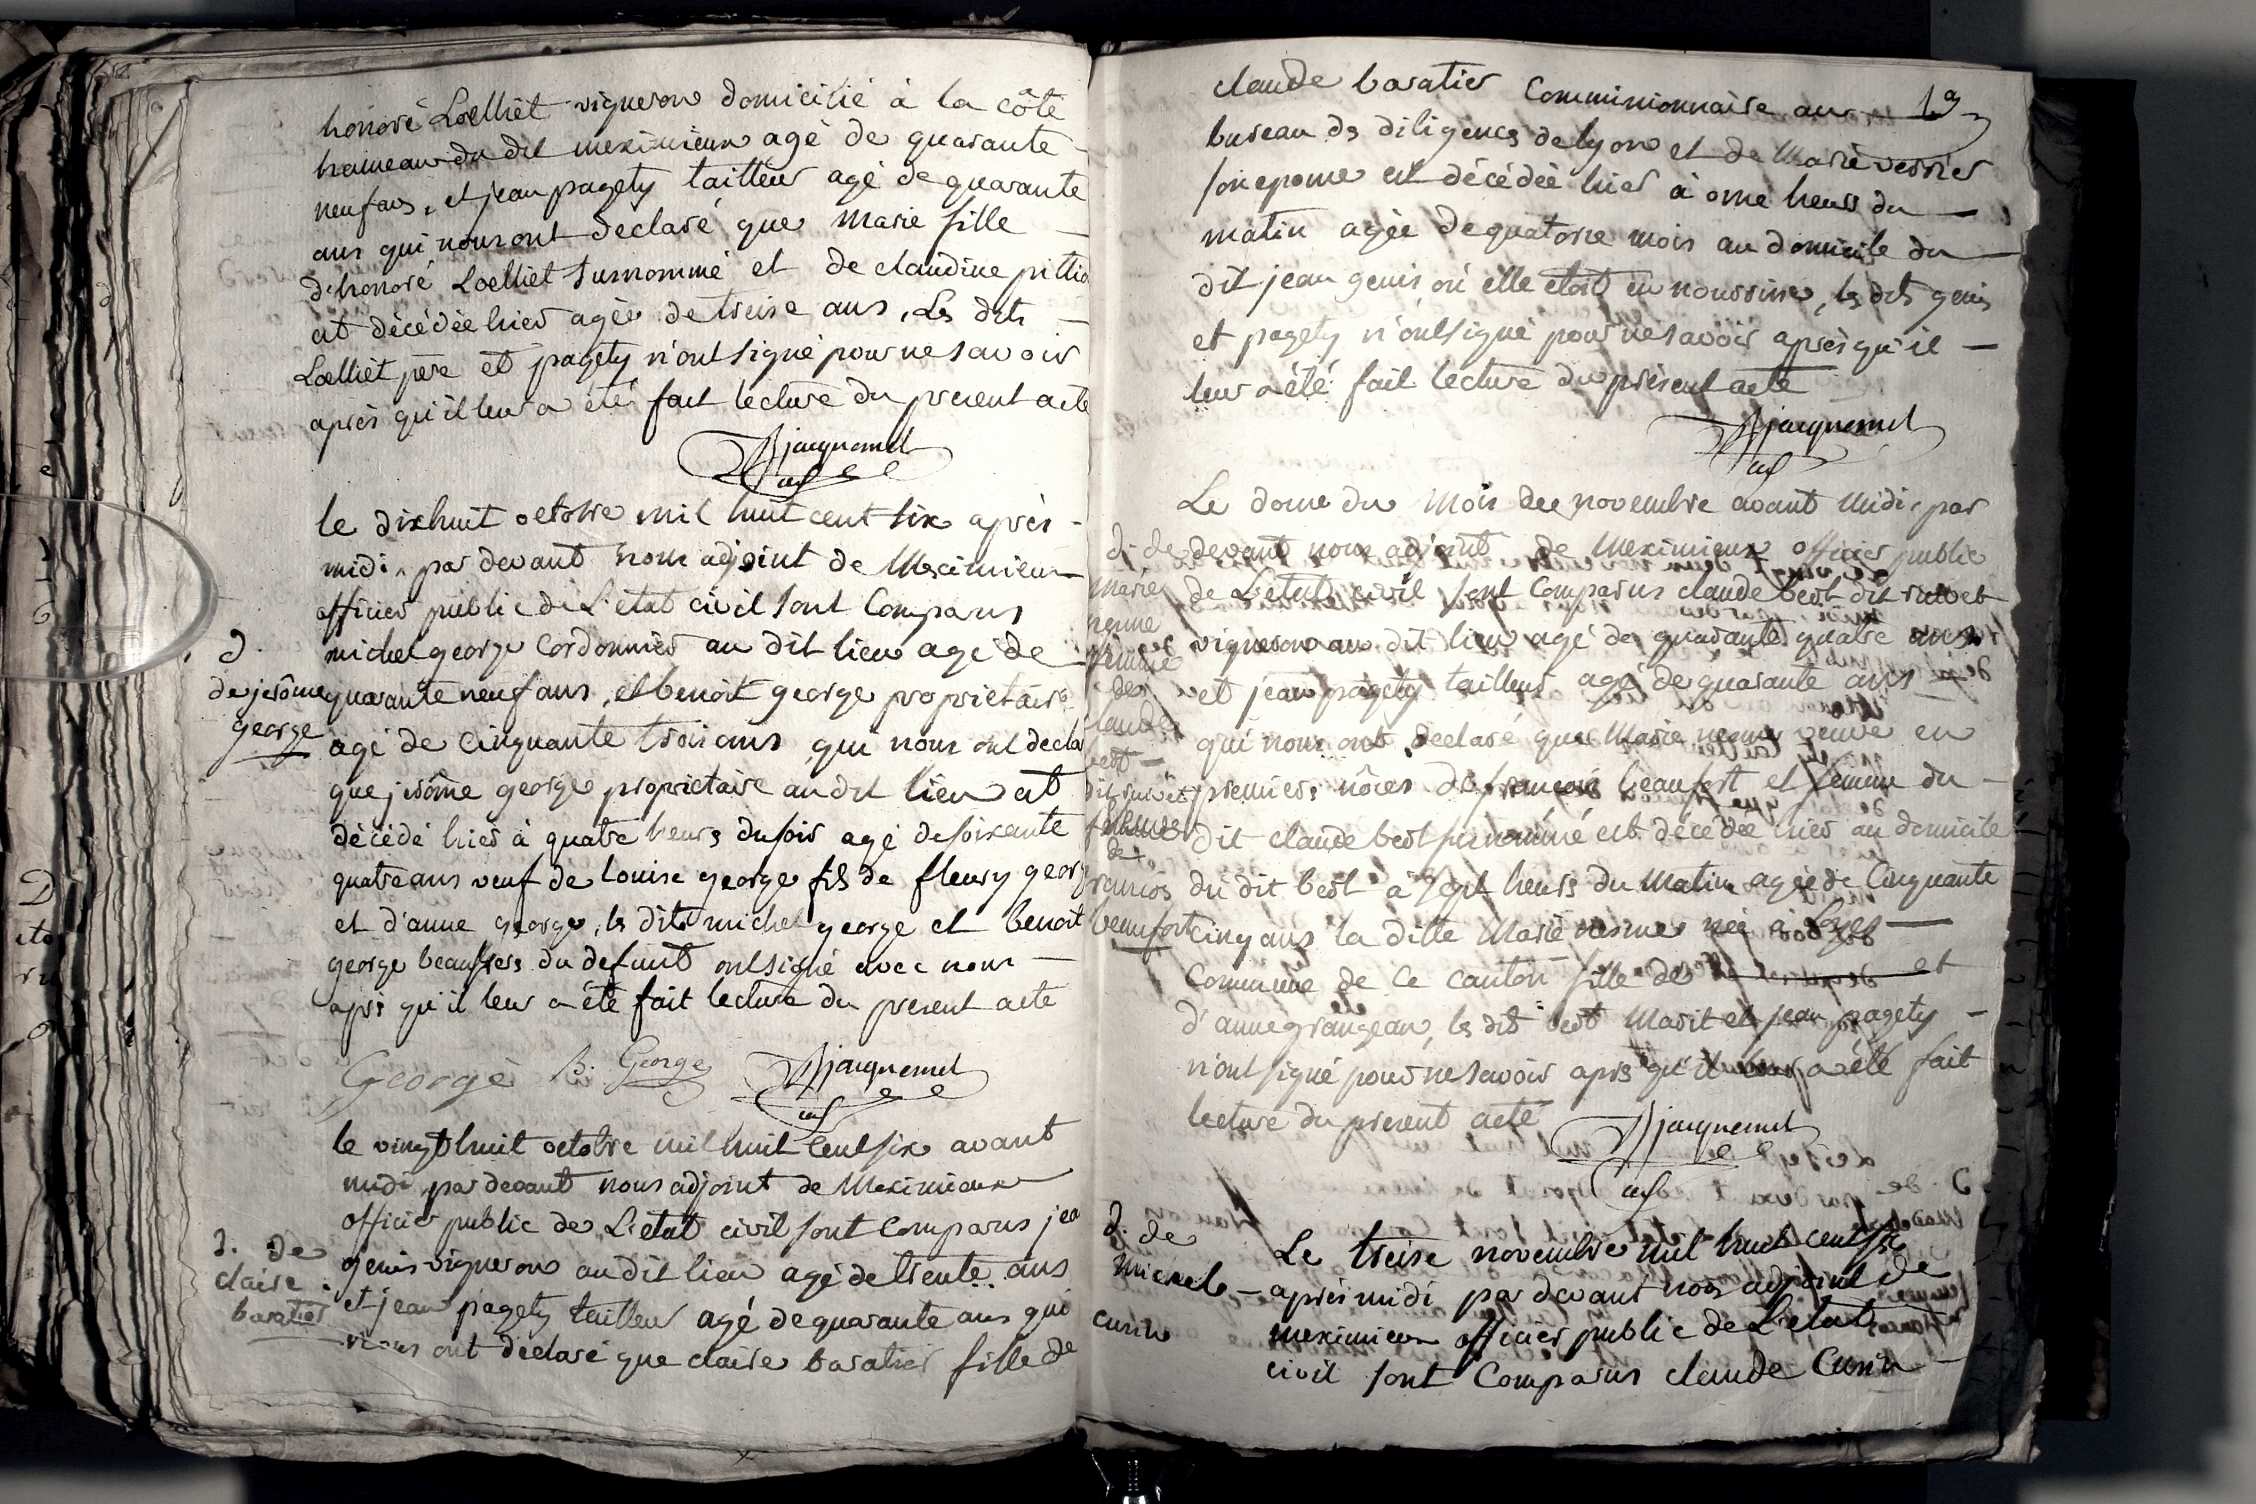 honoré Loelliet vigneron domicilié à la côte
hameau du dit meximieux agé de quarante
neuf ans, et jean pagety tailleur agé de quarante
ans qui nous ont declaré que Marie fille
d'honoré Loelliet susnommé et de claudine
est décédée hier agée de treise ans, Les dits
Loelliet père et pagety n'ont signé pour ne savoir
après qu'il leur a été fait lecture du present acte
jacquemet
le dixhuit octobre mil huit cent six après
midi, par devant nous adjoint de Meximieux
officier public de L'état civil sont Comparus
michel george Cordonnier au dit lieu agé de
d.
de jerôme
george
quarante neuf ans, et benoit george proprietaire
agé de cinquante trois ans, qui nous ont decla
que jerôme george proprietaire au dit lieu est
décédé hier à quatre heurs du soir agé de soixante
quatre ans veuf de louise george fils de fleury georg
et d'anne george, ls dits michel george et benoit
george beaufrers du defunt ont signé avec nous
aprs qu'il leur a été fait lecture du present acte
George B. George jacquemet
le vingt huit octobre mil huit cent six avant
midi par devant nous adjoint de Meximieux
officier public de L'état civil sont comparus jea
d. de
claire
baratier
genis vigneron au dit lieu agé de trente ans
et jean pagety tailleur agé de quarante ans qui
nous ont déclaré que claire baratier fille de
19
claude baratier Commissionnaire aux
bureau ds diligencs de lyon et de Marie verrier
son epouse est décédée hier à onze heurs du
matin agée de quatorse mois au domicile du
dit jean genis où elle étoit en nourrisse, ls dits genis
et pagety n'ont signé pour ne savoir après qu'il
leur a été fait lecture du présent acte
jacquemet
Le douze du mois de novembre avant midi, par
d. de
marie
femme
de
claude
best
dit ruivet
de
francois
beaufort
devant nous adjoint de Meximieux officier public
de L'état civil sont Comparus claude best dit ruivet
vigneron au dit lieu agé de quarante quatre ans
et jean pagety tailleur agé de quarante ans
qui nous ont declaré que Marie veuve en
premiers nôces de francois beaufort et femme du
dit claude best susnommé est décédée hier au domicile
du dit best à sept heurs du Matin agée de Cinquante
cinq ans la ditte Marie née à Loyes
Commune de ce canton fille de et
d'anne grangean, ls dit best Marit et jean pagety
n'ont signé pour ne savoir aprs qu'il leur a été fait
lecture du present acte
jacquemet
d. de
Michel
cusin
Le treise novembre mil huit cent six
aprés midi par devant nous adjoint de
meximieux officier public de L'etat
civil sont Comparus claude Cusin